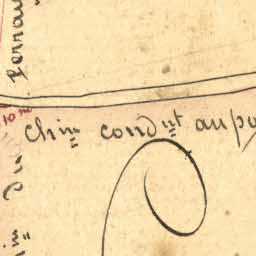 perrau
10 m
Chin condnt au po
in du